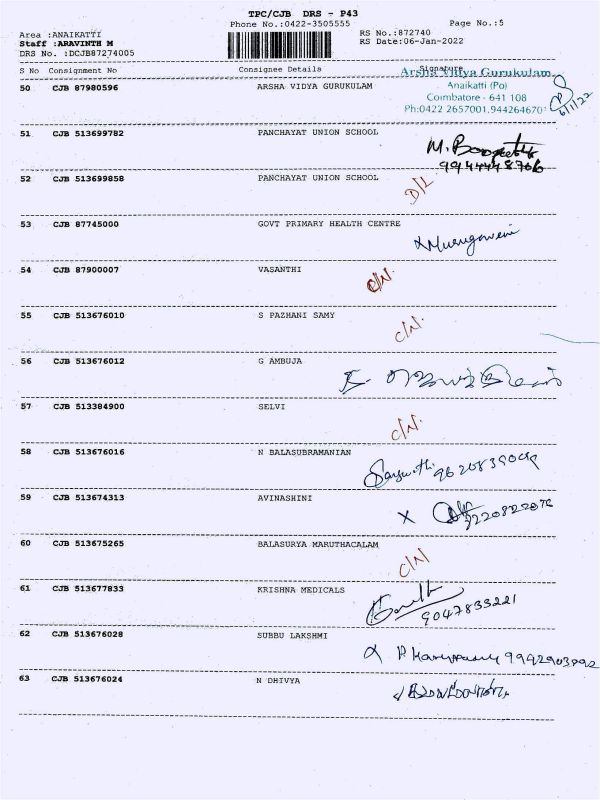 TPC/CJB DRS - P43
Phone No.:0422-3505555
Page No.:5
Area :ANAIKATTI
RS No.:872740
Staff :ARAVINTH M
RS Date:06-Jan-2022
DRS No. :DCJB87274005
S No Consignment No Consignee Details Signature
Arsha Vidya Gurukulam
50 CJB 87980596 ARSHA VIDYA GURUKULAM
Anaikatti (Po)
Coimbatore - 641 108
Ph:0422 2657001,944264670
6/1/22
51 CJB 513699782 PANCHAYAT UNION SCHOOL
52 CJB 513699858 PANCHAYAT UNION SCHOOL
D/L
53 CJB 87745000 GOVT PRIMARY HEALTH CENTRE
54 CJB 87900007 VASANTHI
C/N.
55 CJB 513676010 S PAZHANI SAMY
C/N.
56 CJB 513676012 G AMBUJA
57 CJB 513384900 SELVI
C/N.
58 CJB 513676016 N BALASUBRAMANIAN
59 CJB 513674313 AVINASHINI
X
60 CJB 513675265 BALASURYA MARUTHACALAM
C/N
61 CJB 513677833 KRISHNA MEDICALS
9047833221
62 CJB 513676028 SUBBU LAKSHMI
63 CJB 513676024 N DHIVYA